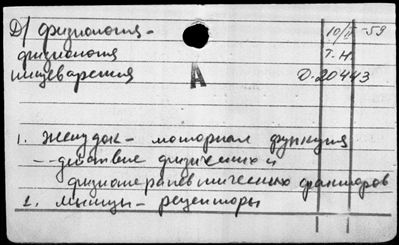 Д/ физиология - 10/V-59
физиология Т.Н.
пищеварения Д-20443
А
1. Желудок - моторная функция
-- действие физических и
физиотерапевтических факторов
2. Мышцы - рецепторы